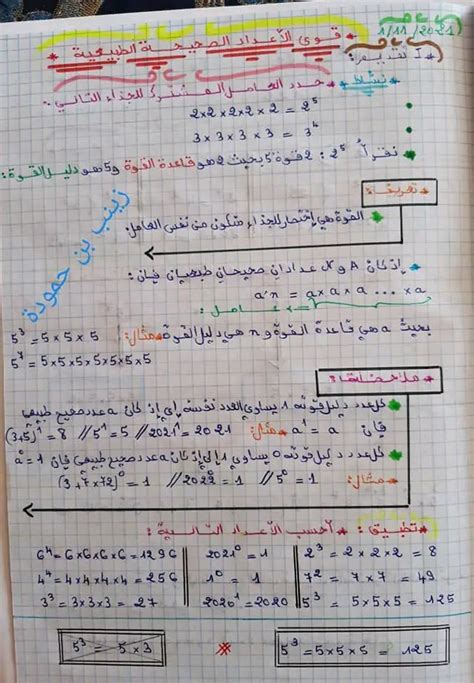 1/11/2021
* قوى الأعداد الصحيحة الطبيعية *
I تقديم:
* نشاط * حدد العامل المشترك للجذاء التالي:
• 2 × 2 × 2 × 2 × 2 = 2⁵
• 3 × 3 × 3 × 3 = 3⁴
• نقرأ 2⁵ : 2 قوة 5 بحيث 2 هو قاعدة القوة و 5 هو دليل القوة:
* تعريف:
القوة هي إختصار للجذاء متكون من نفس العامل.
زينب بن حمودة
* إذ كان A و N عددان صحيحان طبيعيان فإن:
aⁿ = a × a × a ... × a
n عامل:
بحيث a هي قاعدة القوة و n هي دليل القوة * مثال: 5³ = 5 × 5 × 5
5⁷ = 5 × 5 × 5 × 5 × 5 × 5 × 5
* ملاحضات:
كل عدد دليل قوته 1 يساوي العدد نفسه إي إذ كان a عدد صحيح طبيعي
فإن a¹ = a * مثال: 2021¹ = 2021 // 5¹ = 5 // (3+5)¹ = 8
كل عدد دليل قوته 0 يساوي 1 إي إذ كان a عدد صحيح طبيعي فإن a⁰ = 1
* مثال: 5⁰ = 1 // 2022⁰ = 1 // (3+7×72)⁰ = 1
* تطبيق: * أحسب الأعداد التالية:
6⁴ = 6 × 6 × 6 × 6 = 1296 || 2021⁰ = 1 || 2³ = 2 × 2 × 2 = 8
4⁴ = 4 × 4 × 4 × 4 = 256 || 1⁰ = 1 || 7² = 7 × 7 = 49
3³ = 3 × 3 × 3 = 27 || 2020¹ = 2020 || 5³ = 5 × 5 × 5 = 125
5³ = 5 × 3 * 5³ = 5 × 5 × 5 = 125